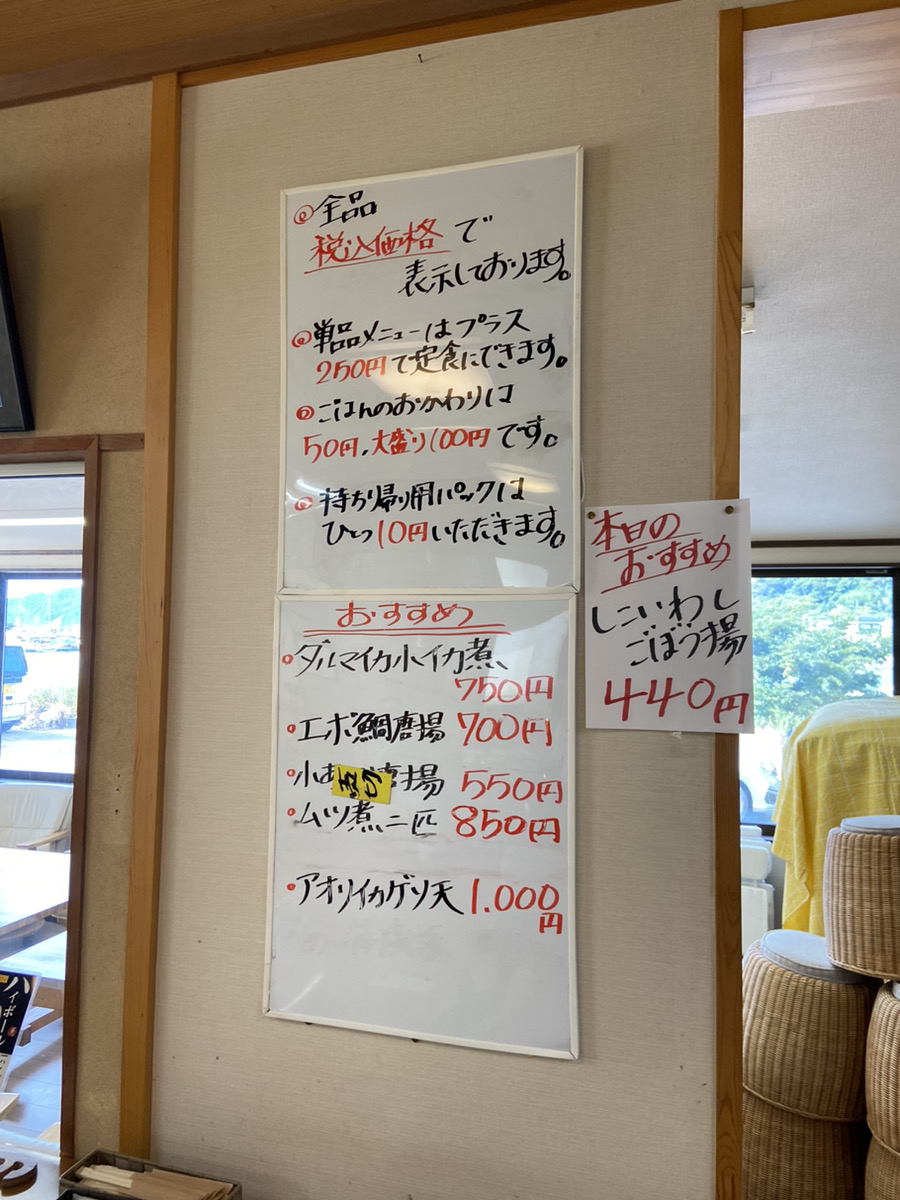 全品
税込価格で
表示しております。
単品メニューはプラス
250円で定食にできます。
ごはんのおかわりは
50円,大盛り100円です。
持ち帰り用パックは
ひとつ10円いただきます。
おすすめ
ダルマイカ小イカ煮
750円
エボ鯛唐揚 700円
小あ 揚 550円
ムツ煮二匹 850円
アオリイカゲソ天 1.000
円
本日の
おすすめ
しこいわし
ごぼう揚
440円
ハイボール